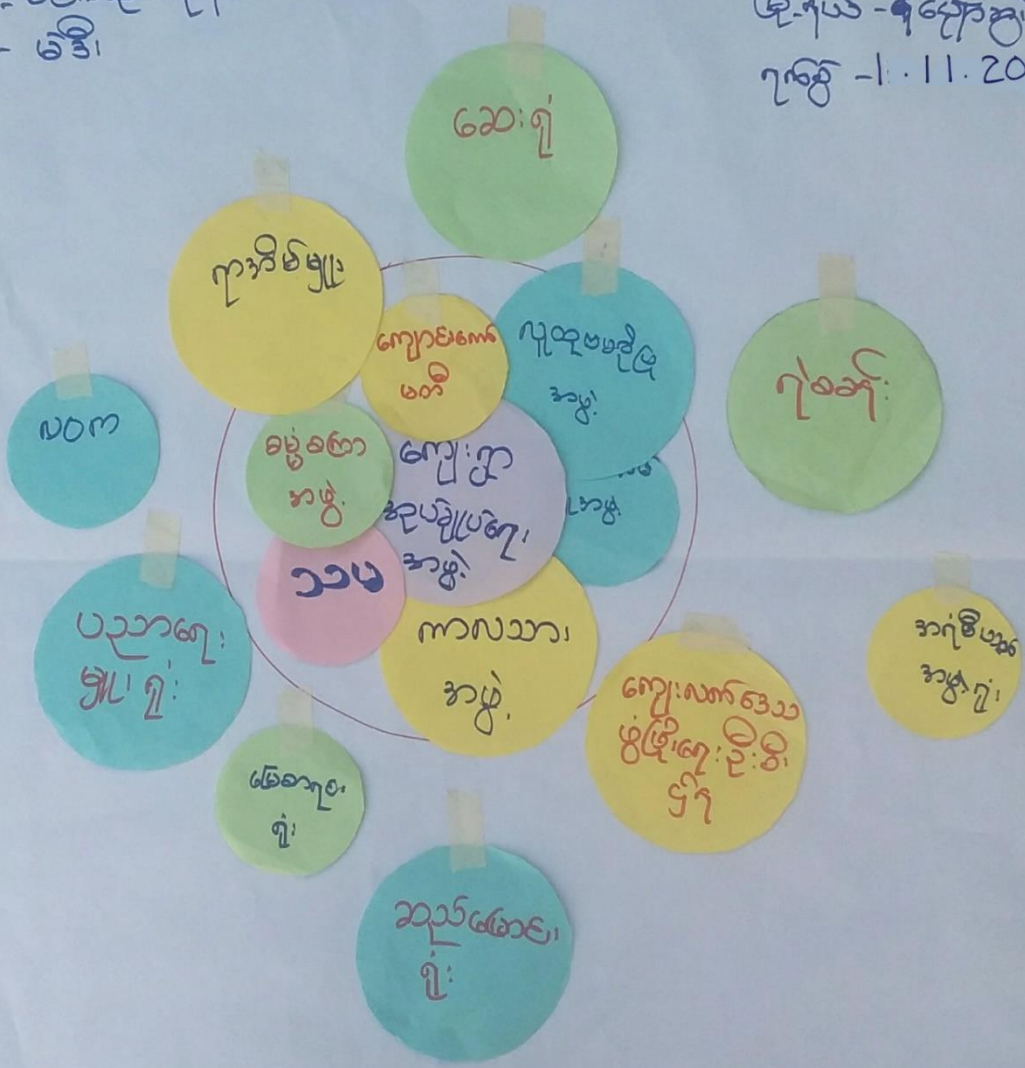 မဲဒီး
ရက်စွဲ -1.11.20
ဆေးရုံ
ရာအိမ်မှူး
ကျောင်းကော်
မတီ
လူထုဗဟိုပြု
အဖွဲ့
ရဲစခန်း
လဝက
ဓမ္မစကြာ
အဖွဲ့
ကျေးရွာ
အုပ်ချုပ်ရေး
အဖွဲ့
အဖွဲ့
သသမ
ကာလသား
အဖွဲ့
ပညာရေး
မှူးရုံး
ကျေးလက်ဒေသ
ဖွံ့ဖြိုးရေးဦးစီး
ဌာန
ရုံး
မြေစာရင်း
ရုံး
ဆည်မြောင်း
ရုံး